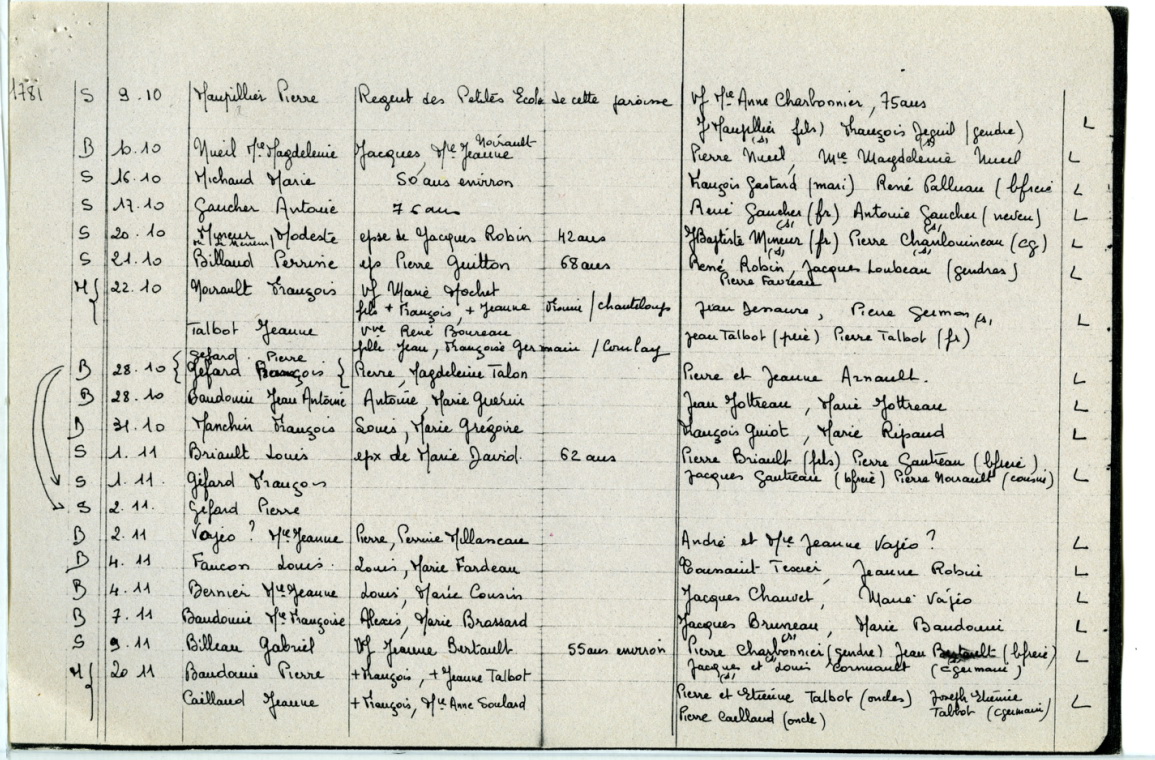 1781 S 9.10 Maupillier Pierre Regent des Petites Ecole de cette paroisse Vf Mie Anne Charbonnier, 75 ans
J Maupillier fils) François Jeguil (gendre) L
B 10.10 Nueil Mie Magdeleine Jacques, Mie Jeanne Noirault Pierre Nueil, Mie Magdeleine Nueil L
S 16.10 Michaud Marie 50 ans environ François Gastard (mari) René Palluau (bfrère L
S 17.10 Gaucher Antoine 76 ans René Gaucher (fr) Antoine Gaucher (neveu) L
S 20.10 Mineur Modeste epse de Jacques Robin 42 ans JBaptiste Mineur (fr) Pierre Charlouineau (cg) L
S 21.10 Billaud Perrine eps Pierre Guitton 68 ans René Robin, Jacques Loubeau (gendres) L
Pierre Favreau
M 22.10 Noirault François Vf Marie Mochet
fils + François, + Jeanne /Chanteloup Jean , Pierre German (s) L
Talbot Jeanne vve René Boureau Jean Talbot (père) Pierre Talbot (fr)
fille Jean, Françoise Germain / Courlay
Géfard Pierre
B 28.10 Géfard François Pierre, Magdeleine Talon Pierre et Jeanne Arnault. L
B 28.10 Baudouin Jean Antoine Antoine, Marie Guerin Jean Jottreau, Marie Jottreau L
B 31.10 Manchin François Louis, Marie Grégoire François Guiot, Marie Ripaud L
S 1.11 Briault Louis epx de Marie David. 62 ans Pierre Briault (fils) Pierre Gautreau (bfrère)
Jacques Gautreau (bfrère) Pierre Noirault (cousin) L
S 1.11. Géfard François
S 2.11. Géfard Pierre
B 2.11 Vajeo ? Mie Jeanne Pierre, Perrine Millanceau André et Mie Jeanne Vajeo ? L
B 4.11 Faucon Louis. Louis, Marie Fardeau Toussaint Texier, Jeanne Robin L
B 4.11 Bernier Mie Jeanne Louis, Marie Cousin Jacques Chauvet, Marie Vajéo L
B 7.11 Baudouin Mie Françoise Alexis, Marie Brossard Jacques Bruneau, Marie Baudouin L
S 9.11 Billeau Gabriel Vf Jeanne Bertault 55 ans environ Pierre Charbonnier (gendre) Jean (bfrère) L
Jacques et Louis Cornuault (cgermains)
M 20 11 Baudouin Pierre + François, + Jeanne Talbot
Caillaud Jeanne + François, Mie Anne Soulard Pierre et Etienne Talbot (oncles) Joseph Etienne Talbot (cgermains) L
Pierre Caillaud (oncle)